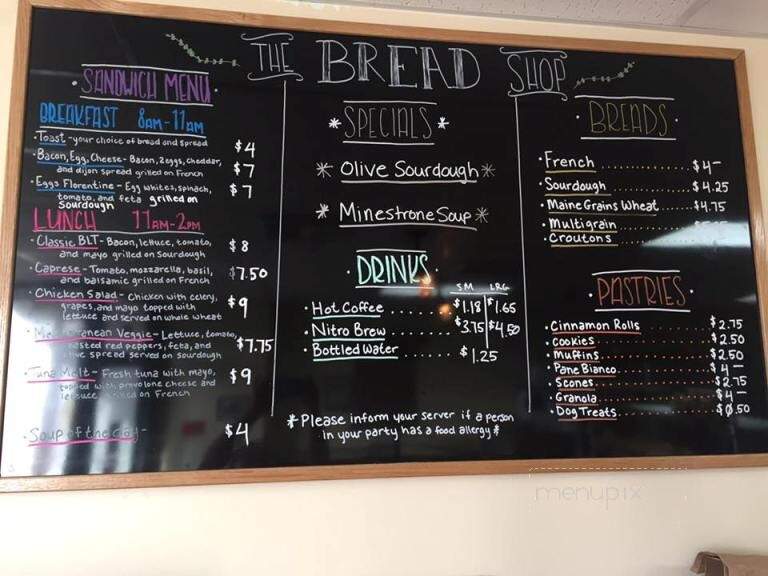 THE BREAD SHOP
SANDWICH MENU
BREAKFAST 8AM-11AM
·Toast - your choice of bread and spread $4
·Bacon, Egg, Cheese - Bacon, 2eggs, cheddar,
and dijon spread grilled on French $7
·Eggs Florentine - Egg whites, spinach, $7
tomato, and feta grilled on
Sourdough
LUNCH 11AM-2PM
·Classic BLT - Bacon, lettuce, tomato, $8
and mayo grilled on Sourdough
·Caprese - Tomato, mozzarella, basil, $7.50
and balsamic grilled on French
·Chicken Salad - Chicken with celery, $9
grapes, and mayo topped with
lettuce and served on whole wheat
Veggie - Lettuce, tomato, $7.75
roasted red peppers, feta, and
olive spread served on sourdough
·Tuna Melt - Fresh tuna with mayo, $9
topped with provolone cheese and
lettuce grilled on French
·Soup of the day - $4
*SPECIALS*
* Olive Sourdough *
* Minestrone Soup *
·DRINKS·
SM LRG
·Hot Coffee ........ $1.18 $1.65
·Nitro Brew ........ $3.75 $4.50
·Bottled Water ...... $1.25
*Please inform your server if a person
in your party has a food allergy*
·BREADS·
·French ............ $4-
·Sourdough ............ $4.25
·Maine Grains Wheat ...... $4.75
·Multigrain ............
·Croutons ............
·PASTRIES·
·Cinnamon Rolls ............ $2.75
·cookies ............ $2.50
·Muffins ............ $2.50
·Pane Bianco ............ $4-
·Scones ............ $2.75
·Granola ............ $4-
·Dog Treats ............ $0.50
menupix